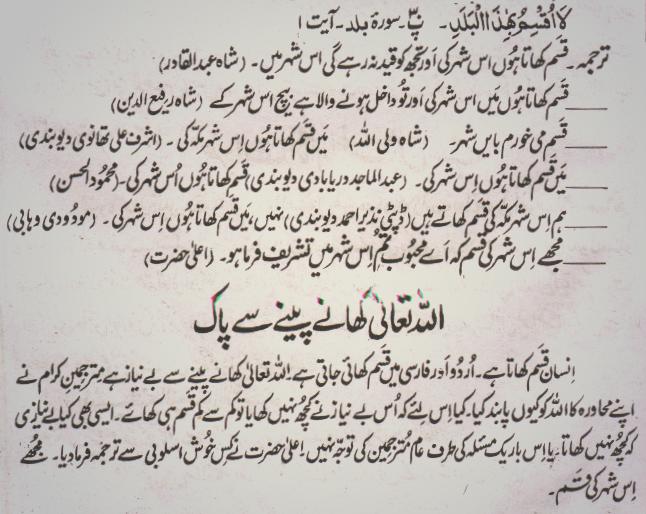 لَا اُقْسِمُ بِهٰذَا الْبَلَدِ۔ پ۳۰۔ سورۂ بلد۔ آیت ۱
ترجمہ۔ قسم کھاتا ہُوں اس شہر کی اَور تجھ کو قید نہ رہے گی اس شہر میں۔ (شاہ عبدالقادر)
____ قسم کھاتا ہُوں مَیں اس شہر کی اَور تُو داخل ہونے والا ہے بیچ اس شہر کے (شاہ رفیع الدین)
____ قسم می خورم بایں شہر۔ (شاہ ولی اللہ) مَیں قسم کھاتا ہُوں اِس شہر مکّہ کی۔ (اشرف علی تھانوی دیوبندی)
____ مَیں قَسم کھاتا ہُوں اِس شہر کی۔ (عبدالماجد دریابادی دیوبندی) قَسم کھاتا ہُوں اُس شہر کی۔ (محمُود الحسن)
____ ہم اِس شہر مکّہ کی قسم کھاتے ہیں (ڈپٹی نذیر احمد دیوبندی) نہیں، مَیں قسم کھاتا ہُوں اِس شہر کی۔ (مودودی وہابی)
____ مجھے اِس شہر کی قسم کہ اَے محبُوب تُم اِس شہر میں تشریف فرما ہو۔ (اعلیٰ حضرت)
اللہ تعالیٰ کھانے پینے سے پاک
انسان قسَم کھاتا ہے۔ اُردُو اَور فارسی میں قسَم کھائی جاتی ہے۔ اللہ تعالیٰ کھانے پینے سے بے نیاز ہے مترجمین کرام نے
اپنے محاورہ کا اللہ کو کیوں پابند کیا۔ کیا اِس لئے کہ اُس بے نیاز نے کچھ نہیں کھایا تو کم سے کم قسم ہی کھائے۔ ایسی بھی کیا بے نیازی
کہ کچھ نہیں کھاتا۔ یا اِس باریک مسئلہ کی طرف عام مُترجمین کی توجّہ نہیں۔ اعلیٰ حضرت نے کِس خُوش اسلوبی سے ترجمہ فرما دیا۔ مجھے
اِس شہر کی قسَم۔